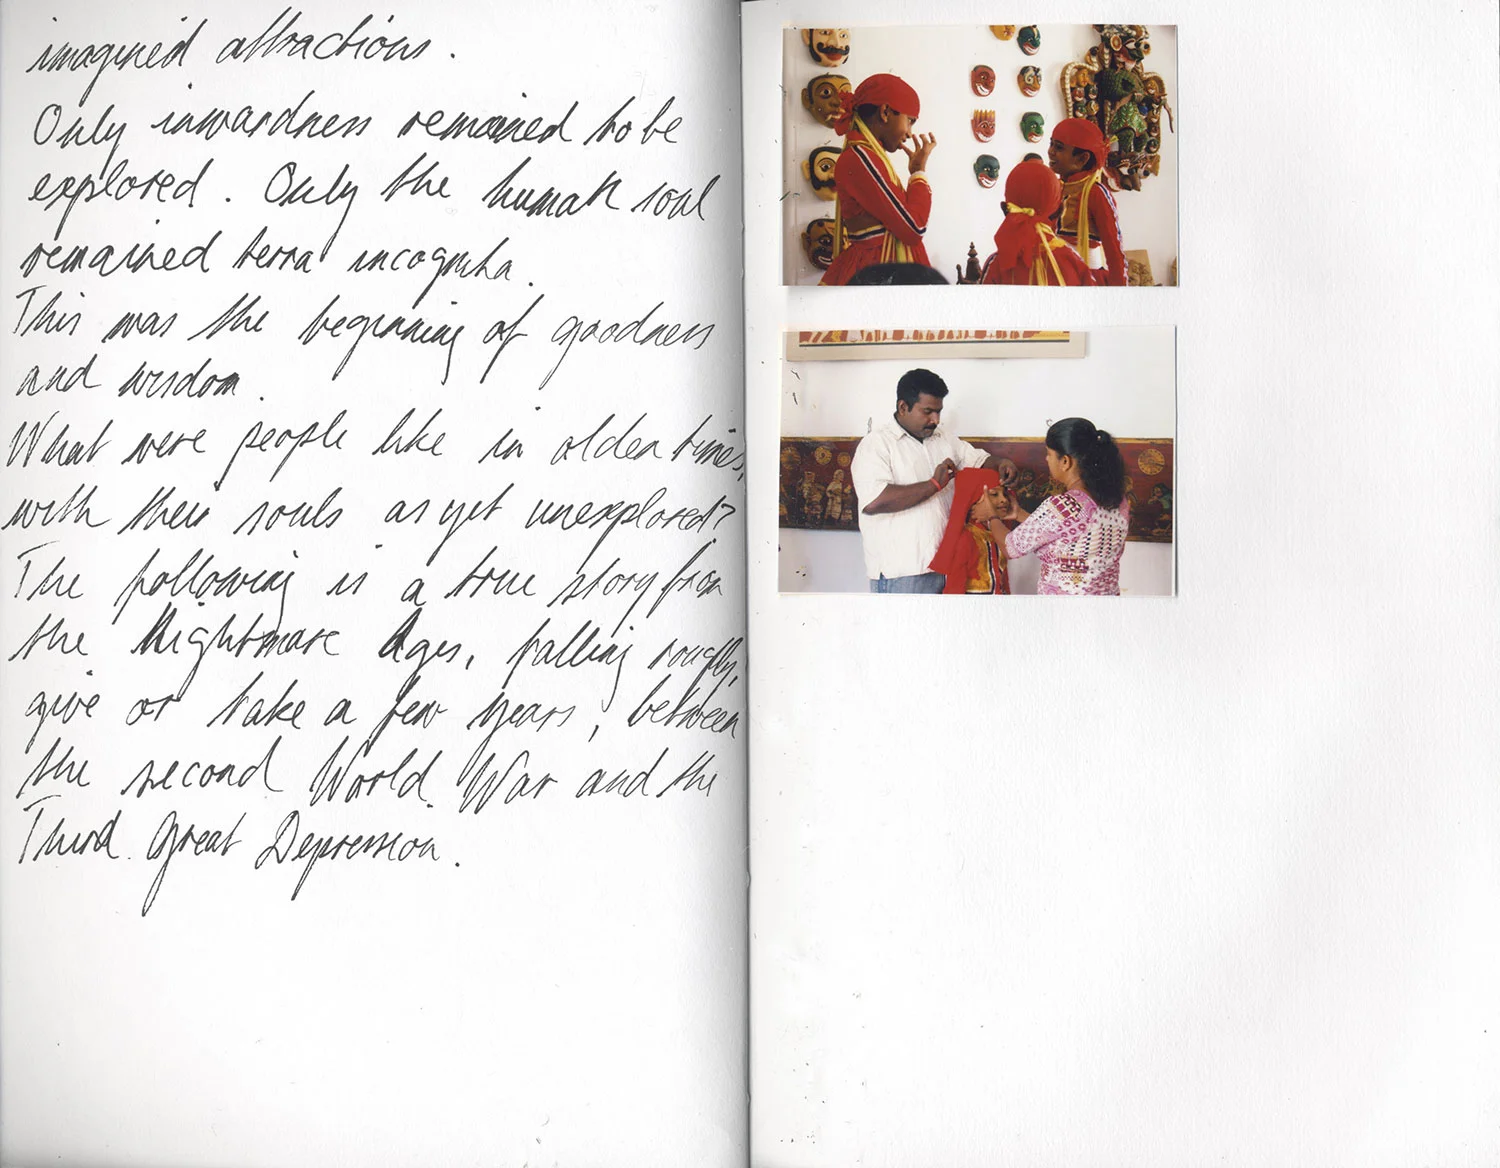 imagined attractions.
Only inwardness remained to be
explored. Only the human soul
remained terra incognita.
This was the beginning of goodness
and wisdom.
What were people like in olden times,
with their souls as yet unexplored?
The following is a true story from
the Nightmare Ages, falling roughly,
give or take a few years, between
the second World War and the
Third Great Depression.